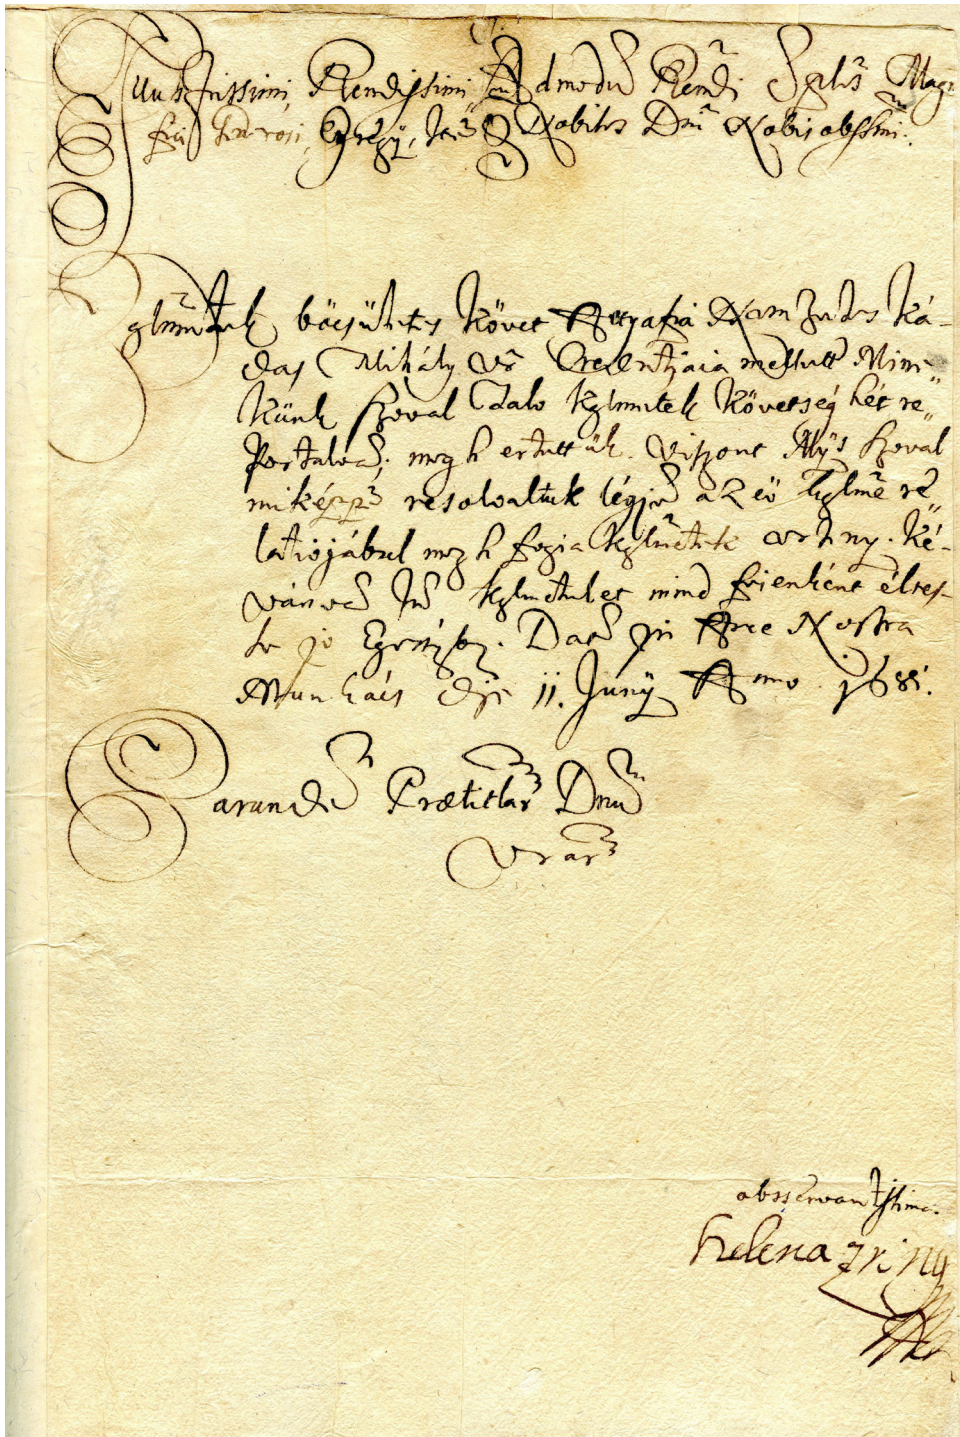 Illustrissimi, Rendissimi Admodũ Rendi Sples Magn
fici Generosi, Egregÿ, Nobiles Dnĩ Nobis obssmi.
Kglmetek böcsületes Követ Attyafia Nemzetes Ká-
das Mihály Vr Credentiaia mellett Nimi-
künk szoval valo kglmetek Követseghét re-
portalvá; megh ertettük. Viszont Mÿs szoval
miképpẽ resolvaltuk légjẽ az eö kglme re-
latiojábul megh fogia kglmetek erteny. Ké-
vánvá kglmeteket mind fejenként éltes-
se jo Egessegbẽ. Datũ in Arce Nostra
Munkács die 11. Junÿ Anno 1681.
Earundẽ Prætitlar Dnũ
Vrar
obsservantissima.
helena Zriny